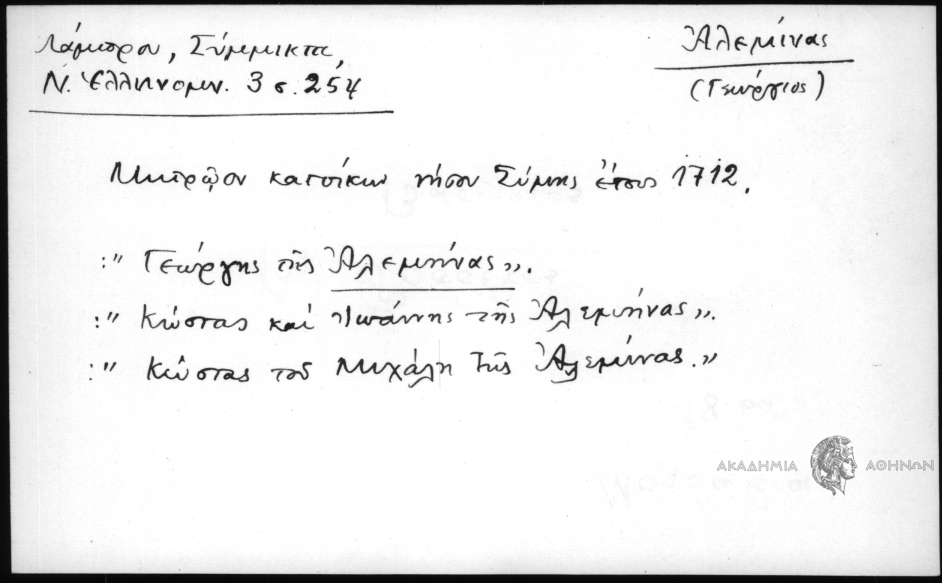 Λάμπρου, Σύμμικτα,
Ν. Ἑλληνομν. 3 σ. 254
Ἀλεμίνας
(Γεώργιος)
Μητρῷον κατοίκων νήσου Σύμης ἔτους 1712.
:" Γεώργης τῆς Ἀλεμηνας".
:" Κώστας καὶ Ἰωάννης τῆς Ἀλεμηνας".
:" Κώστας τοῦ Μιχάλη τῆς Ἀλεμηνας."
ΑΚΑΔΗΜΙΑ ΑΘΗΝΩΝ